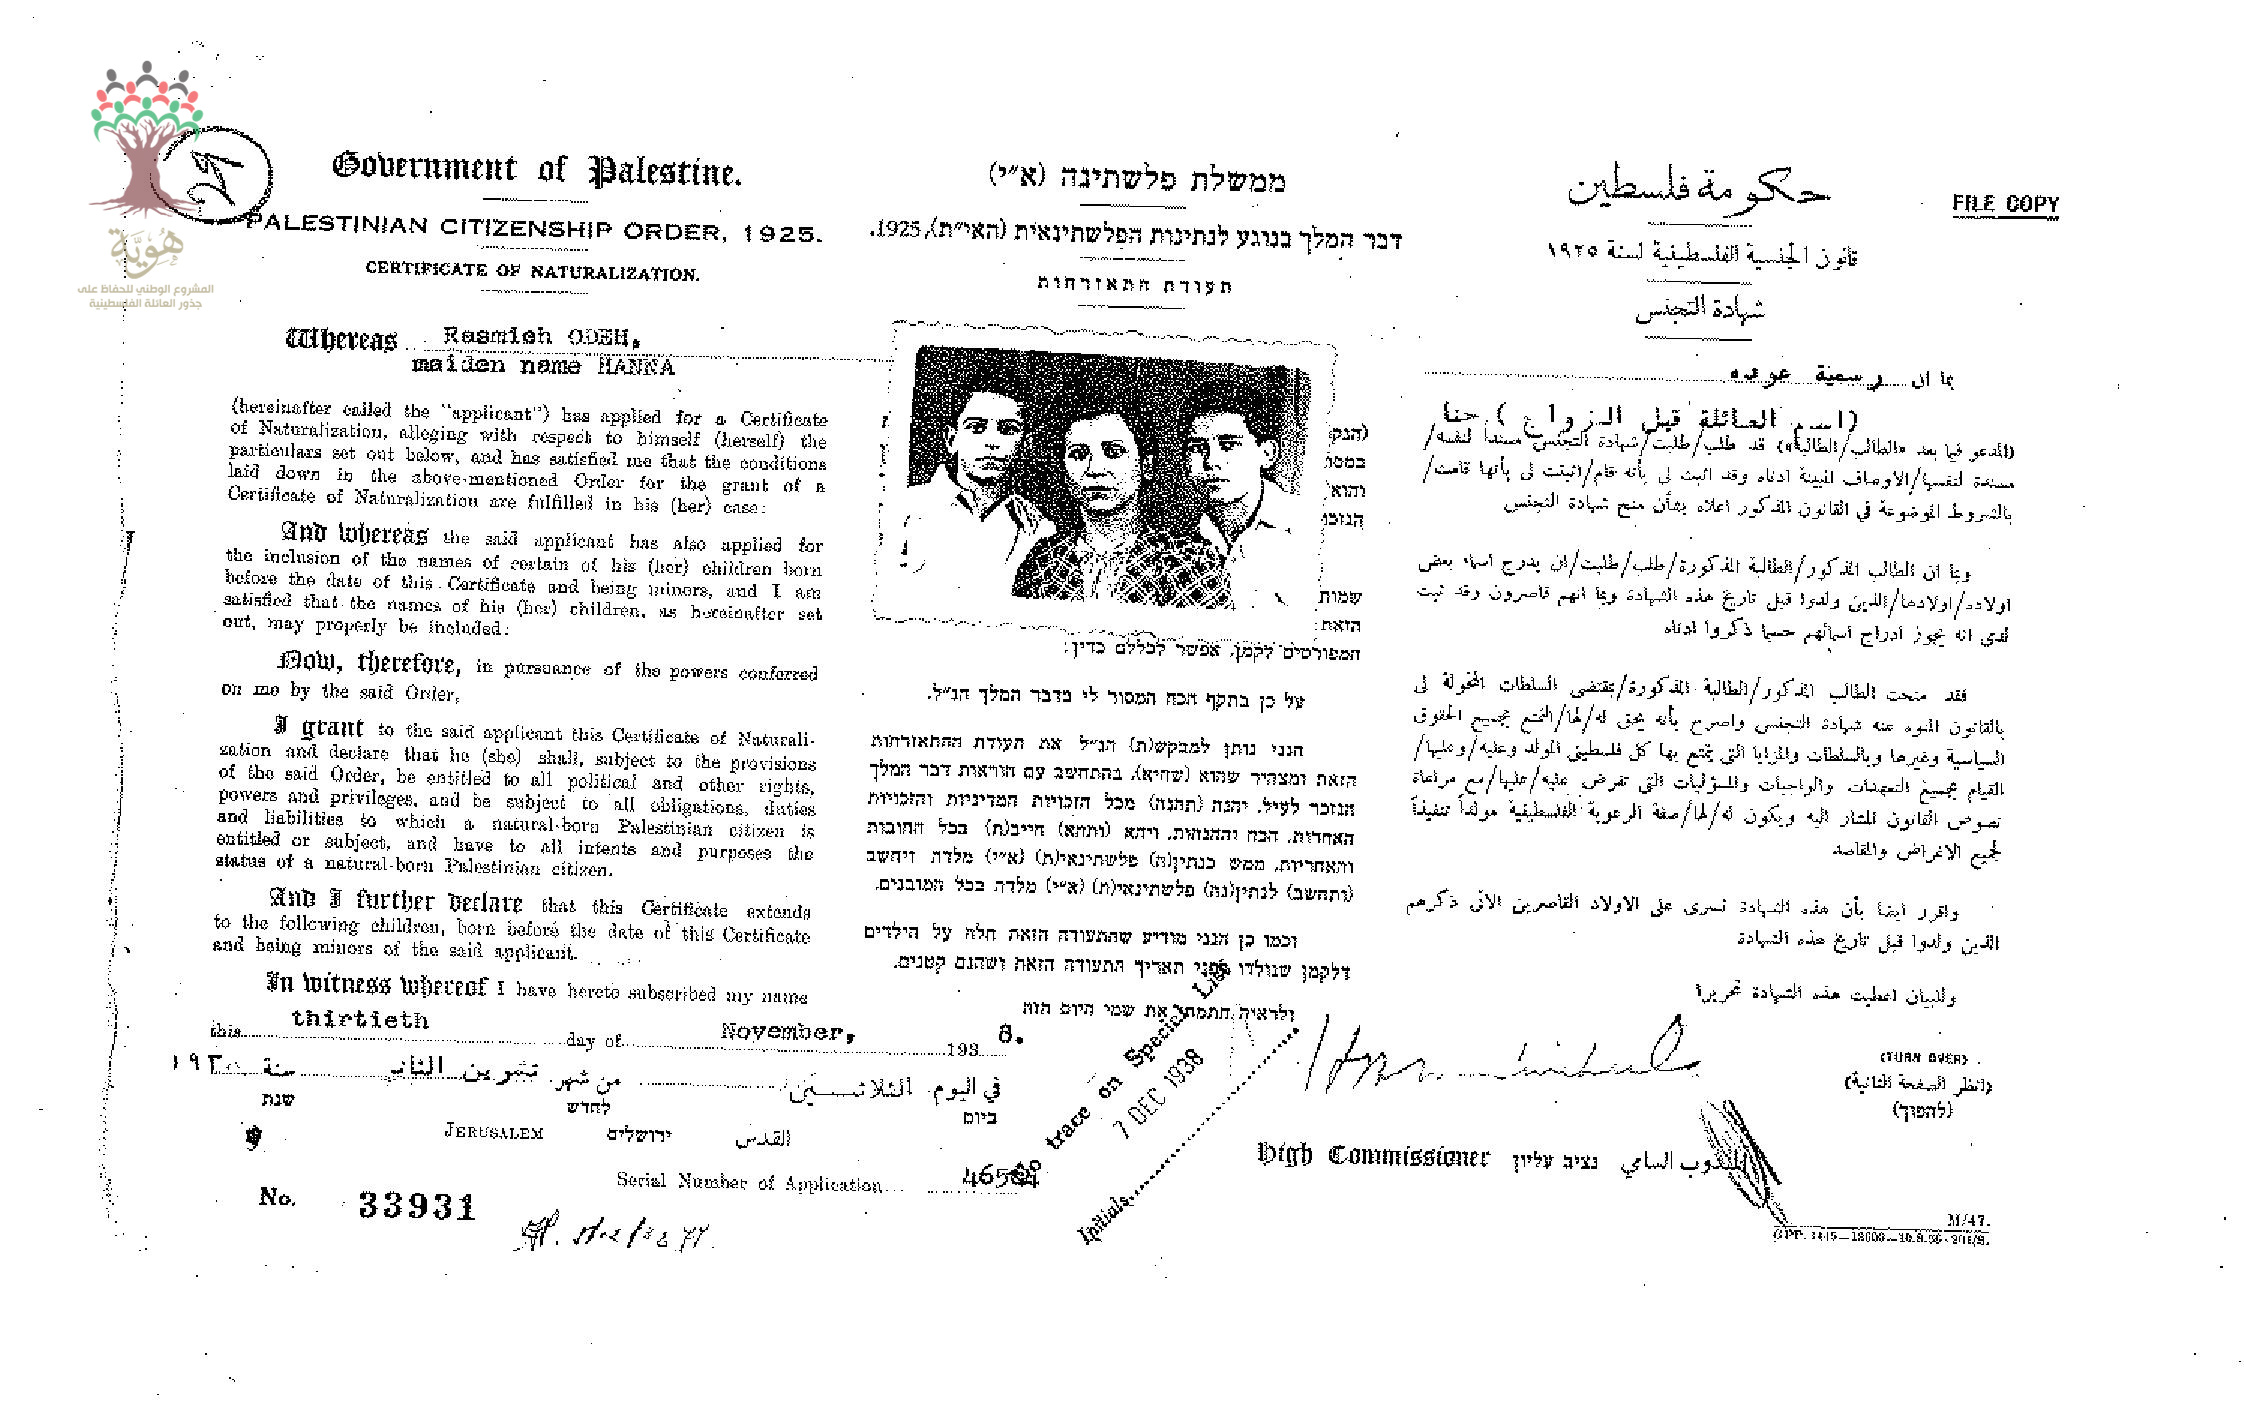 هُوِيَّة
المشروع الوطني للحفاظ على
جذور العائلة الفلسطينية
Government of Palestine.
PALESTINIAN CITIZENSHIP ORDER, 1925.
CERTIFICATE OF NATURALIZATION.
Whereas Rasmieh ODEH,
maiden name HANNA
(hereinafter called the "applicant") has applied for a Certificate
of Naturalization, alleging with respect to himself (herself) the
particulars set out below, and has satisfied me that the conditions
laid down in the above-mentioned Order for the grant of a
Certificate of Naturalization are fulfilled in his (her) case:
And whereas the said applicant has also applied for
the inclusion of the names of certain of his (her) children born
before the date of this Certificate and being minors, and I am
satisfied that the names of his (her) children, as hereinafter set
out, may properly be included:
Now, therefore, in pursuance of the powers conferred
on me by the said Order,
I grant to the said applicant this Certificate of Naturali-
zation and declare that he (she) shall, subject to the provisions
of the said Order, be entitled to all political and other rights,
powers and privileges, and be subject to all obligations, duties
and liabilities to which a natural-born Palestinian citizen is
entitled or subject, and have to all intents and purposes the
status of a natural-born Palestinian citizen.
And I further declare that this Certificate extends
to the following children, born before the date of this Certificate
and being minors of the said applicant.
In witness whereof I have hereto subscribed my name
this thirtieth day of November, 1938.
ממשלת פלשתינה (א״י)
דבר המלך בנוגע לנתינות הפלשתינאית (הא״ית), 1925.
תעודת התאזרחות
(הנק
במסו
והוא
הנזכו
שמות
הזאת
המפורטים לקמן, אפשר לכללם כדין:
על כן בתקף הכח המסור לי בדבר המלך הנ״ל.
הנני נותן למבקש(ת) הנ״ל את תעודת ההתאזרחות
הזאת ומצהיר שהוא (שהיא), בהתחשב עם הוראות דבר המלך
הנזכר לעיל, יהנה (תהנה) מכל הזכויות המדיניות והזכויות
האחרות, הכח וההנחות, ויהא (ותהא) חייב(ת) בכל החובות
והאחריות, ממש כנתין(ה) פלשתינאי(ת) (א״י) מלדה ויחשב
(ותחשב) לנתין(נה) פלשתינאי(ת) (א״י) מלדה בכל המובנים.
וכמו כן הנני מודיע שהתעודה הזאת חלה על הילדים
דלקמן שנולדו לפני תאריך התעודה הזאת ושהנם קטנים.
ולראיה חתמתי את שמי היום הזה
حكومة فلسطين
قانون الجنسية الفلسطينية لسنة ١٩٢٥
شهادة التجنس
بما ان رسمية عوده
(اسم العائلة قبل الزواج) حنا
(المدعو فيما بعد «الطالب/الطالبة») قد طلب/طلبت/شهادة التجنس مسنداً لنفسه/
مسندة لنفسها/الاوصاف المبينة ادناه وقد اثبت لى بأنه قام/اثبتت لى بأنها قامت/
بالشروط الموضوعة في القانون المذكور اعلاه بشأن منح شهادة التجنس
وبما ان الطالب المذكور/الطالبة المذكورة/طلب/طلبت/ان يدرج اسماء بعض
اولاده/اولادها/الذين ولدوا قبل تاريخ هذه الشهادة وبما انهم قاصرون وقد ثبت
لدي انه يجوز ادراج اسمائهم حسبما ذكروا ادناه
فقد منحت الطالب المذكور/الطالبة المذكورة/بمقتضى السلطات المخولة لى
بالقانون المنوه عنه شهادة التجنس واصرح بأنه يحق له/لها/التمتع بجميع الحقوق
السياسية وغيرها وبالسلطات والمزايا التى يتمتع بها كل فلسطيني المولد وعليه/وعليها/
القيام بجميع التعهدات والواجبات والمسؤليات التى تفرض عليه/عليها/مع مراعاة
نصوص القانون المشار اليه ويكون له/لها/صفة الرعوية الفلسطينية مولداً تنفيذاً
لجميع الاغراض والمقاصد
واقرر ايضا بأن هذه الشهادة تسرى على الاولاد القاصرين الآتى ذكرهم
الذين ولدوا قبل تاريخ هذه الشهادة
وللبيان اعطيت هذه الشهادة تحريرا
FILE COPY
في اليوم الثلاثين من شهر تشرين الثاني سنة ١٩٣٨
ביום לחדש שנת
JERUSALEM ירושלים القدس
Serial Number of Application
No. 33931
trace on Special List
7 DEC 1938
Initials
High Commissioner נציב עליון المندوب السامي
(TURN OVER)
(انظر الصفحة الثانية)
(להפוך)
M/47.